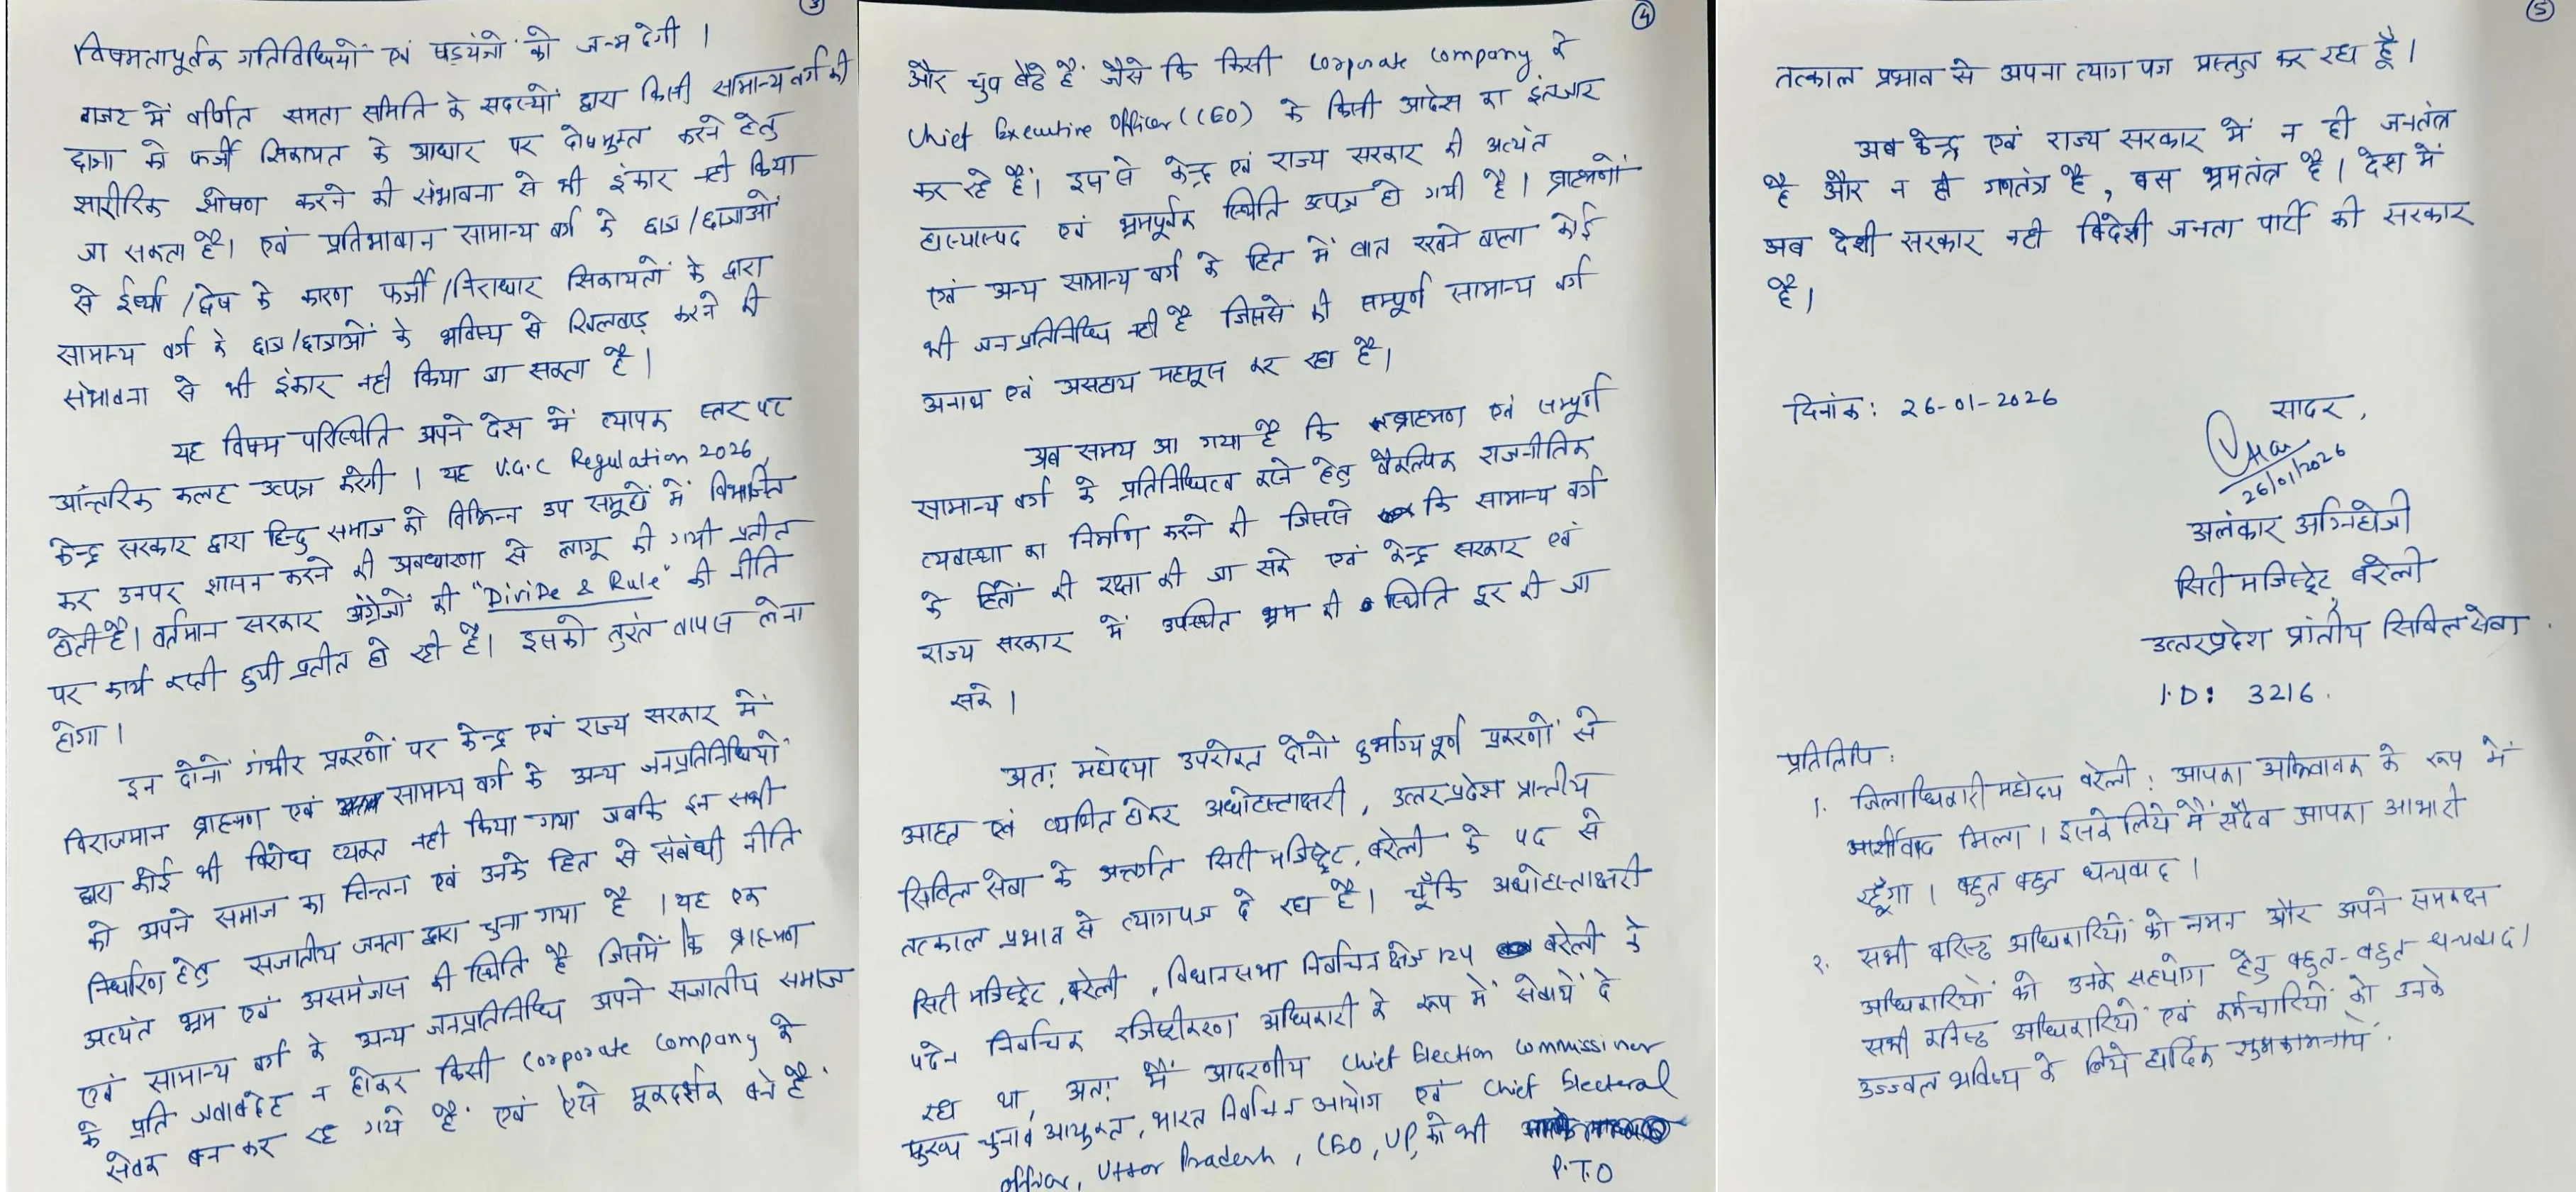 ③
विषमतापूर्वक गतिविधियों एवं षड़यंत्रों को जन्म देगी ।
गजट में वर्णित समता समिति के सदस्यों द्वारा किसी सामान्य वर्ग की
छात्रा को फर्जी सिकायत के आधार पर दोषमुक्त करने हेतु
शारीरिक शोषण करने की संभावना से भी इंकार नही किया
जा सकता है। एवं प्रतिभावान सामान्य वर्ग के छात्र/छात्राओं
से ईर्ष्या/द्वेष के कारण फर्जी/निराधार सिकायतों के द्वारा
सामान्य वर्ग के छात्र/छात्राओं के भविष्य से खिलवाड़ करने की
संभावना से भी इंकार नही किया जा सकता है।
यह विषम परिस्थिति अपने देस में व्यापक स्तर पर
आंन्तरिक कलह उत्पन्न करेगी । यह U.G.C Regulation 2026,
केन्द्र सरकार द्वारा हिन्दु समाज को विभिन्न उप समूहों में विभाजित
कर उनपर शासन करने की अवधारणा से लागू की गयी प्रतीत
होती है। वर्तमान सरकार अंग्रेजों की "DiviDe & Rule" की नीति
पर कार्य करती हुयी प्रतीत हो रही है। इसको तुरंत वापस लेना
होगा ।
इन दोनों गंभीर प्रकरणों पर केन्द्र एवं राज्य सरकार में
विराजमान ब्राह्मण एवं सामान्य वर्ग के अन्य जनप्रतिनिधियों
द्वारा कोई भी विरोध व्यक्त नही किया गया जबकि इन सभी
को अपने समाज का चिन्तन एवं उनके हित से संबंधी नीति
निर्धारण हेतु सजातीय जनता द्वारा चुना गया है । यह एक
अत्यंत भ्रम एवं असमंजस की स्थिति है जिसमें कि ब्राह्मण
एवं सामान्य वर्ग के अन्य जनप्रतिनिधि अपने सजातीय समाज
के प्रति जवाबदेह न होकर किसी Corporate Company के
सेवक बन कर रह गये हैं एवं ऐसे मूकदर्शक बने है
④
और चुप बैठे हैं जैसे कि किसी Corporate Company के
Chief Executive Officer (CEO) के किसी आदेस का इंतजार
कर रहे हैं। इस से केन्द्र एवं राज्य सरकार की अत्यंत
हास्यास्पद एवं भ्रमपूर्वक स्थिति उत्पन्न हो गयी है । ब्राह्मणों
एवं अन्य सामान्य वर्ग के हित में बात रखने वाला कोई
भी जनप्रतिनिधि नही है जिससे की सम्पूर्ण सामान्य वर्ग
अनाथ एवं असहाय महसूस कर रहा है।
अब समय आ गया है कि ब्राह्मण एवं सम्पूर्ण
सामान्य वर्ग के प्रतिनिधित्व करने हेतु वैकल्पिक राजनीतिक
व्यवस्था का निर्माण करने की जिससे कि सामान्य वर्ग
के हितों की रक्षा की जा सके एवं केन्द्र सरकार एवं
राज्य सरकार में उपस्थित भ्रम की स्थिति दूर की जा
सके ।
अतः महोदया उपरोक्त दोनों दुर्भाग्यपूर्ण प्रकरणों से
आहत एवं व्यथित होकर अधोहस्ताक्षरी, उत्तरप्रदेस प्रान्तीय
सिविल सेवा के अन्तर्गत सिटी मजिस्ट्रेट, बरेली के पद से
तत्काल प्रभाव से त्यागपत्र दे रहा है। चूँकि अधोहस्ताक्षरी
सिटी मजिस्ट्रेट, बरेली, विधानसभा निर्वाचन क्षेत्र 124 बरेली के
पदेन निर्वाचक रजिस्ट्रीकरण अधिकारी के रूप में सेवायें दे
रहा था, अतः मैं आदरणीय Chief Election Commissiner
मुख्य चुनाव आयुक्त, भारत निर्वाचन आयोग एवं Chief Electoral
Officer, Uttar Pradesh, CEO, UP, को भी
P.T.O
⑤
तत्काल प्रभाव से अपना त्याग पत्र प्रस्तुत कर रहा हूँ।
अब केन्द्र एवं राज्य सरकार में न ही जनतंत्र
है और न ही गणतंत्र है, बस भ्रमतंत्र है। देश में
अब देशी सरकार नही विदेशी जनता पार्टी की सरकार
है।
दिनांक: 26-01-2026
सादर,
26/01/2026
अलंकार अग्निहोत्री
सिटी मजिस्ट्रेट, बरेली
उत्तरप्रदेश प्रांतीय सिविल सेवा
I.D: 3216.
प्रतिलिपि:
1. जिलाधिकारी महोदय बरेली: आपका अभिवावक के रूप में
आर्शीवाद मिला। इसके लिये मैं सदैव आपका आभारी
रहूँगा । बहुत बहुत धन्यवाद ।
२. सभी वरिष्ठ अधिकारियों को नमन और अपने समकक्ष
अधिकारियों को उनके सहयोग हेतु बहुत-बहुत धन्यवाद।
सभी कनिष्ठ अधिकारियों एवं कर्मचारियों को उनके
उज्ज्वल भविष्य के लिये हार्दिक शुभकामनायें.